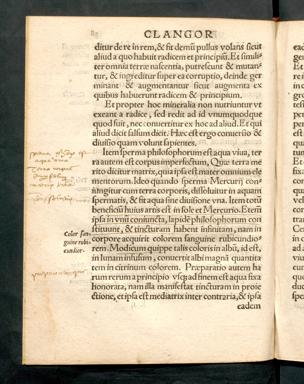 CLANGOR
ditur de re in rem, & fit demū pullus volans sicut
aliud a quo habuit radicem et principiū. Et simili-
ter omnia terræ nascentia, putrescunt & mutan-
tur, & ingreditur super ea corruptio, deinde ger
minant & augmentantur sicut augmenta ex
quibus habuerunt radicem & principium.
Et propter hoc mineralia non nutriuntur vt
exeant a radice, sed redit ad id vnumquodque
quod fuit, nec conuertitur ex hoc ad aliud. Et qui
aliud dicit falsum dicit. Hæc est ergo conuersio &
diuisio quam volunt sapientes.
Item sperma philosophorum est aqua viua, ter
ra autem est corpus imperfectum, Quæ terra me
rito dicitur matrix, quia ipsa est mater omnium ele
mentorum. Ideo quando sperma Mercurij con
iungitur cum terra corporis, dissoluitur in aquam
spermatis, & fit aqua sine diuisione vna. Item totū
beneficiū huius artis est in sole et Mercurio. Et eis
ipsis in vnū coniunctis, lapidē philosophorum con
stituunt, & tincturam habent infinitam, nam in
corpore acquirit colorem sanguine rubicundio-
rem. Modicum quippe talis coloris in albū, id est,
in lunam infusum, conuertit albi magnā quantita
tem in citrinum colorem. Præparatio autem ha
rum rerum a principio vsque ad finem est aqua fixa
honorata, nam illa manifestat tincturam in proie
ctione, et ipsa est mediatrix inter contraria, & ipsa
eadem
Color san-
guine rubi
cundior.